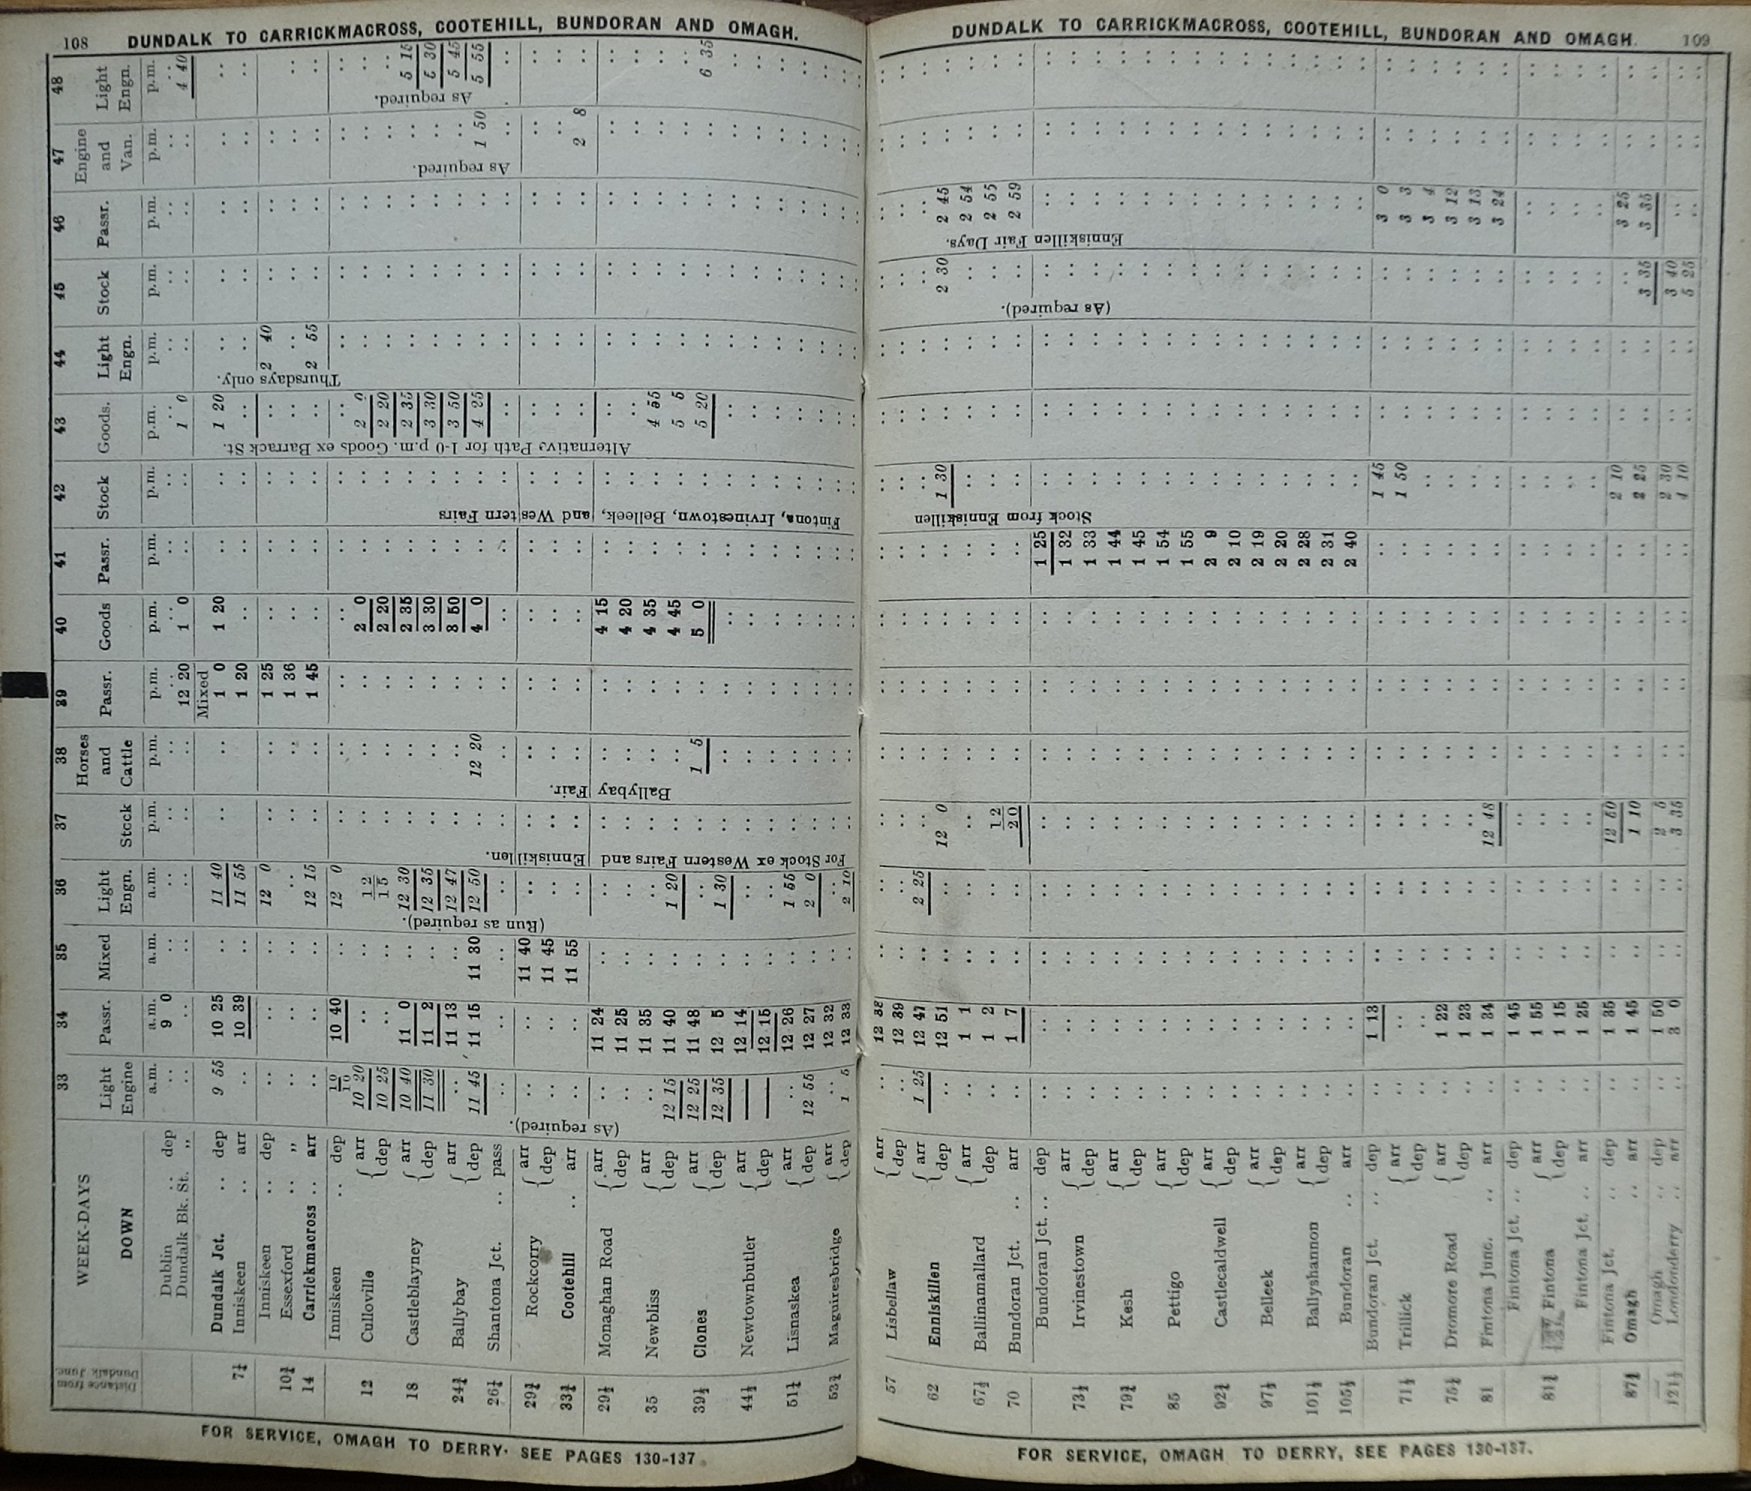 108 DUNDALK TO CARRICKMACROSS, COOTEHILL, BUNDORAN AND OMAGH.
Distance from Dundalk Junc.
WEEK-DAYS 33 34 35 36 37 38 39 40 41 42 43 44 45 46 47 48
DOWN Light Engine Passr. Mixed Light Engn. Stock Horses and Cattle Passr. Goods Passr. Stock Goods. Light Engn. Stock Passr. Engine and Van. Light Engn.
a.m. a.m. a.m. a.m. p.m. p.m. p.m. p.m. p.m. p.m. p.m. p.m. p.m. p.m. p.m. p.m.
Dublin .. dep 9 0
Dundalk Bk. St. ,, 12 20 1 0 1 0 4 40
Mixed
Dundalk Jct. .. dep 9 55 10 25 11 40 1 0 1 20 1 20
7¼ Inniskeen .. arr 10 39 11 55 1 20
Inniskeen .. dep 12 0 1 25 2 40
10¾ Essexford .. ,, 1 36
14 Carrickmacross .. arr 12 15 1 45 2 55
Thursdays only.
Inniskeen .. dep 10 10 10 40 12 0
12 Culloville arr 10 20 12 15 2 0 2 0
dep 10 25 2 20 2 20
18 Castleblayney arr 10 40 11 0 12 30 2 35 2 35 5 15
dep 11 30 11 2 12 35 3 30 3 30 5 30
24¾ Ballybay arr 11 13 12 47 3 50 3 50 5 45
dep 11 45 11 15 11 30 12 50 12 20 4 0 4 25 1 50 5 55
26¼ Shantona Jct. .. pass
29¾ Rockcorry arr 11 40
dep 11 45
33¾ Cootehill .. arr 11 55 2 8
29½ Monaghan Road arr 11 24 4 15
dep 11 25 4 20
35 Newbliss arr 11 35 4 35 4 55
dep 12 15 11 40 1 20 4 45 5 5
39½ Clones arr 12 25 11 48 1 5 5 0 5 20 6 35
dep 12 35 12 5 1 30
44½ Newtownbutler arr 12 14
dep 12 15
51¼ Lisnaskea arr 12 26 1 55
dep 12 55 12 27 2 0
53¾ Maguiresbridge arr 12 32
dep 1 5 12 33 2 10
(As required).
(Run as required).
For Stock ex Western Fairs and Enniskillen.
Ballybay Fair.
Fintona, Irvinestown, Belleek, and Western Fairs
Alternative Path for 1-0 p.m. Goods ex Barrack St.
As required.
As required.
FOR SERVICE, OMAGH TO DERRY. SEE PAGES 130-137.
DUNDALK TO CARRICKMACROSS, COOTEHILL, BUNDORAN AND OMAGH. 109
57 Lisbellaw arr 12 38
dep 12 39
62 Enniskillen arr 1 25 12 47 2 25
dep 12 51 12 0 1 30 2 30 2 45
67½ Ballinamallard arr 1 1 2 54
dep 1 2 12 20 2 55
70 Bundoran Jct. .. arr 1 7 2 59
Bundoran Jct. .. dep 1 25
73½ Irvinestown arr 1 32
dep 1 33
79¾ Kesh arr 1 44
dep 1 45
85 Pettigo arr 1 54
dep 1 55
92¾ Castlecaldwell arr 2 9
dep 2 10
97½ Belleek arr 2 19
dep 2 20
101½ Ballyshannon arr 2 28
dep 2 31
105½ Bundoran .. arr 2 40
Bundoran Jct. .. dep 1 13 1 45 3 0
71½ Trillick arr 1 50 3 3
dep 3 4
75¾ Dromore Road arr 1 22 3 12
dep 1 23 3 13
81 Fintona Junc. .. arr 1 34 12 48 3 24
Fintona Jct. .. dep 1 45
81¾ Fintona arr 1 55
dep 1 15
Fintona Jct. .. arr 1 25
Fintona Jct. .. dep 1 35 12 50 2 10 3 25
87¾ Omagh .. arr 1 45 1 10 2 25 3 35 3 35
Omagh .. dep 1 50 2 5 2 30 3 40
121½ Londonderry .. arr 3 0 3 35 4 10 5 25
Stock from Enniskillen
(As required).
Enniskillen Fair Days.
FOR SERVICE, OMAGH TO DERRY, SEE PAGES 130-137.